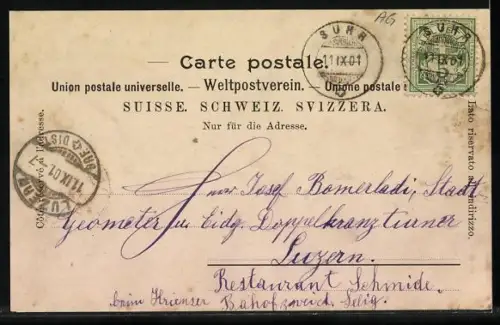 AG
SUHR
11.IX.01
SUHR
11.IX.01
Carte postale.
Union postale universelle. — Weltpostverein. — Unione postale
SUISSE. SCHWEIZ. SVIZZERA.
Nur für die Adresse.
Côté réservé à l'adresse.
Lato riservato all'indirizzo.
LUZERN
11.IX.01
BRF. DIS
Herrn Josef Bomerladi, Stadt
Geometer u. Eidg. Doppelkranzturner
Luzern.
Restaurant Schmide.
beim